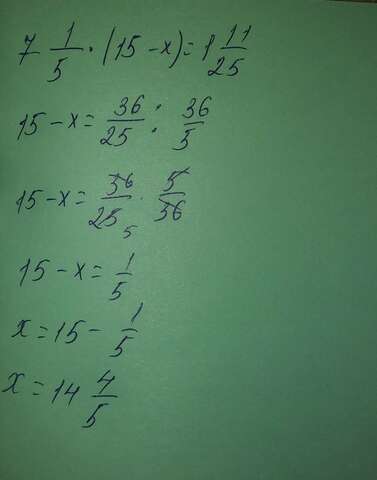 7 1/5 · (15 - x) = 1 11/25
15 - x = 36/25 : 36/5
15 - x = 36/25 5 · 5/36
15 - x = 1/5
x = 15 - 1/5
x = 14 4/5